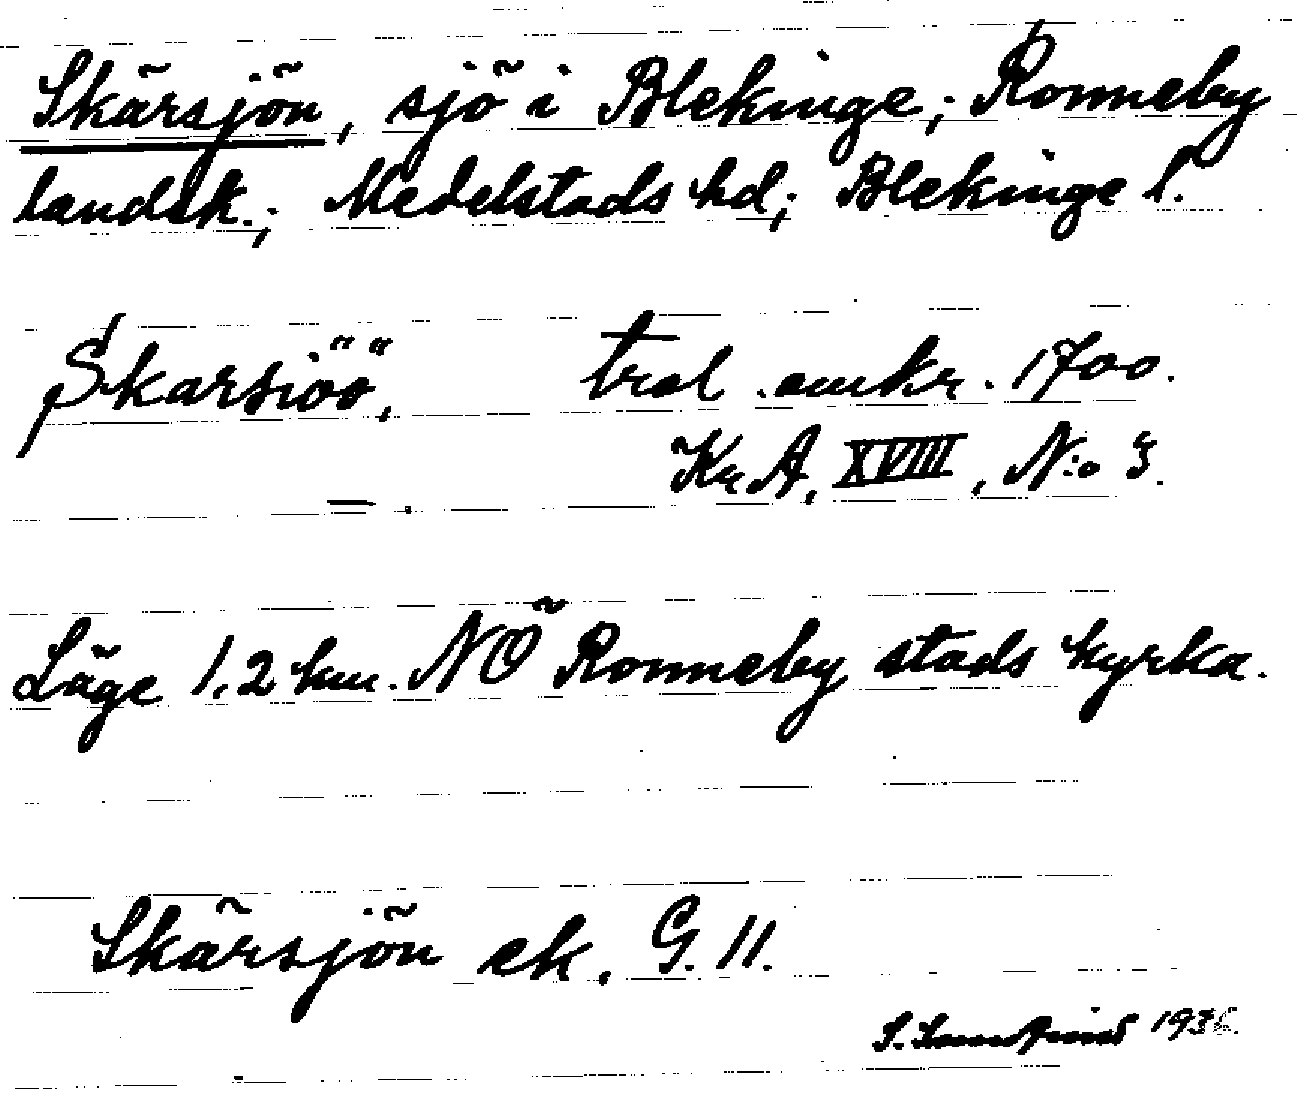 Skärsjön, sjö i Blekinge; Ronneby
landsk.; Medelstads hd; Blekinge l.
Skarsiöö, trol. omkr. 1700.
Kr. A. XVIII, N:o 3.
—.
Läge 1,2 km. NÖ Ronneby stads kyrka.
Skärsjön ek. G. 11.
S.